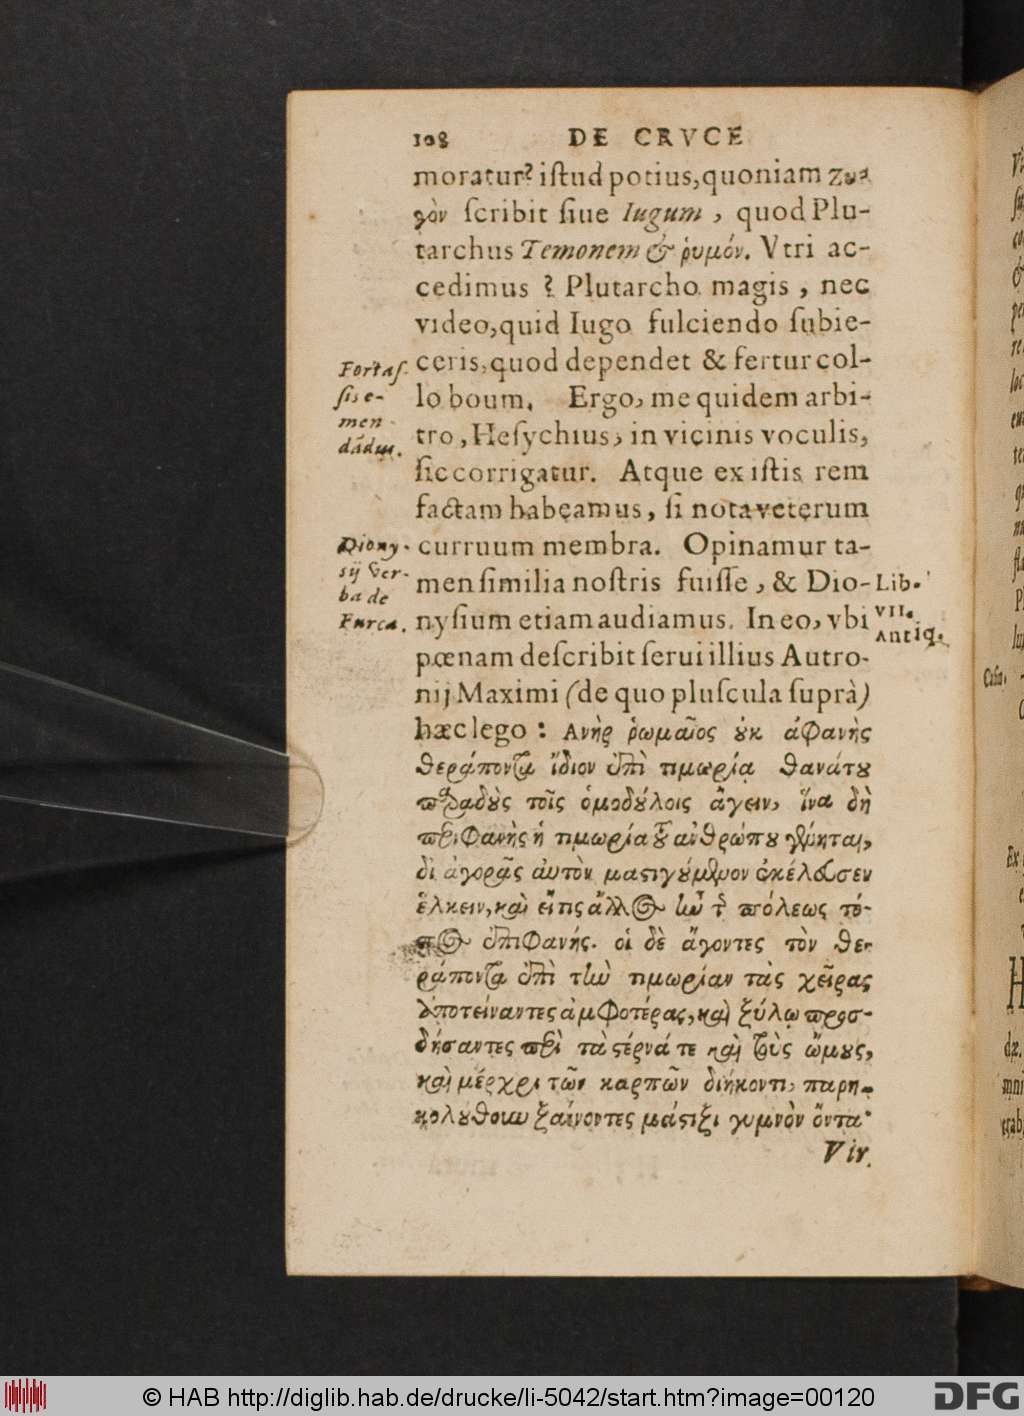 108 DE CRVCE
moratur? istud potius, quoniam ζυ-
γὸν scribit siue Iugum, quod Plu-
tarchus Temonem & ῥυμόν. Vtri ac-
cedimus? Plutarcho magis, nec
video, quid Iugo fulciendo subie-
ceris, quod dependet & fertur col-
lo boum. Ergo, me quidem arbi-
tro, Hesychius, in vicinis voculis,
sic corrigatur. Atque ex istis rem
factam habeamus, si nota veterum
curruum membra. Opinamur ta-
men similia nostris fuisse, & Dio-
nysium etiam audiamus. In eo, vbi
pœnam describit serui illius Autro-
nij Maximi (de quo pluscula suprà)
hæc lego: Ανὴρ ῥωμαῖος ȣκ ἀφανὴς
θεράποντα ἴδιον ἐπὶ τιμωρίᾳ θανάτȣ
παραδȣ̀ς τοῖς ὁμοδȣ́λοις ἄγειν, ἵνα δὴ
περιφανὴς ἡ τιμωρία τȣ͂ ἀνθρώπȣ γένηται,
δι ἀγορᾶς ἀυτὸν μαστιγȣ́μενον ἐκέλευσεν
ἕλκειν, καὶ εἴ τις ἄλλος ἦν τῆς πόλεως τό-
πος ἐπιφανής. οἱ δὲ ἄγοντες τὸν θε-
ράποντα ἐπὶ τὴν τιμωρίαν τὰς χεῖρας
ἀποτείναντες ἀμφοτέρας, καὶ ξύλῳ προσ-
δήσαντες περὶ τὰ στέρνά τε καὶ τȣ̀ς ὤμȣς,
καὶ μέρχρι τῶν καρπῶν διήκοντι, παρη-
κολȣ́θȣν ξαίνοντες μάστιξι γυμνὸν ὄντα·
Vir.
Fortas-
sis e-
men-
dādum.
Diony-
sij Ver-
ba de
Furca.
Lib.
VII.
Antiq.
© HAB http://diglib.hab.de/drucke/li-5042/start.htm?image=00120
DFG